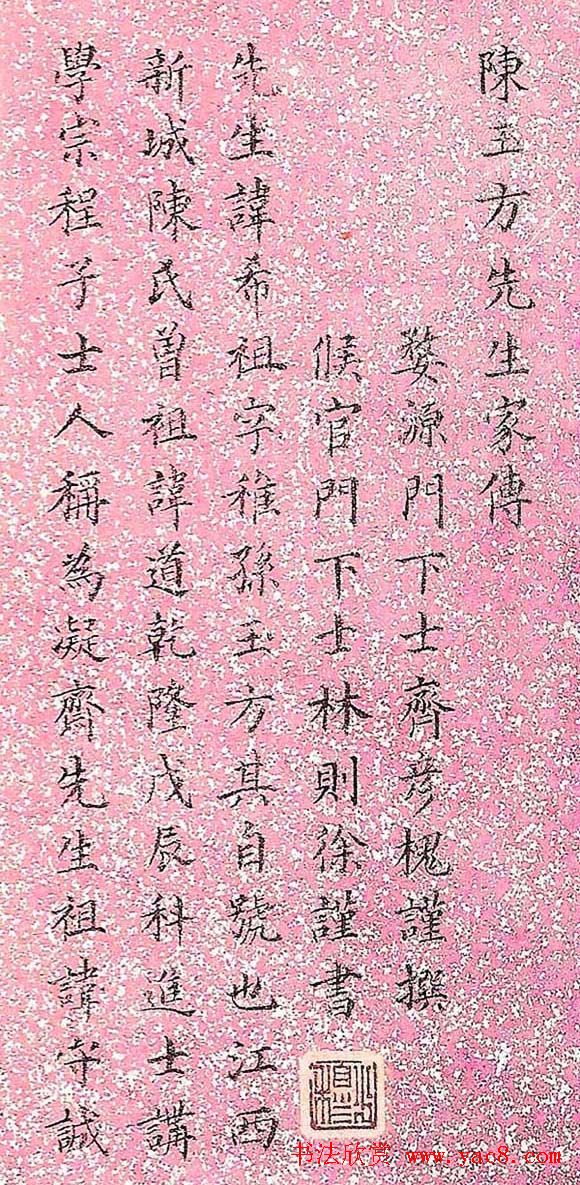 陳玉方先生家傳
婺源門下士齊彦槐謹撰
候官門下士林則徐謹書
先生諱希祖字稚孫玉方其自號也江西
新城陳氏曾祖諱道乾隆戊辰科進士講
學宗程子士人稱為凝齋先生祖諱守誠
书法欣赏 www.yac8.com